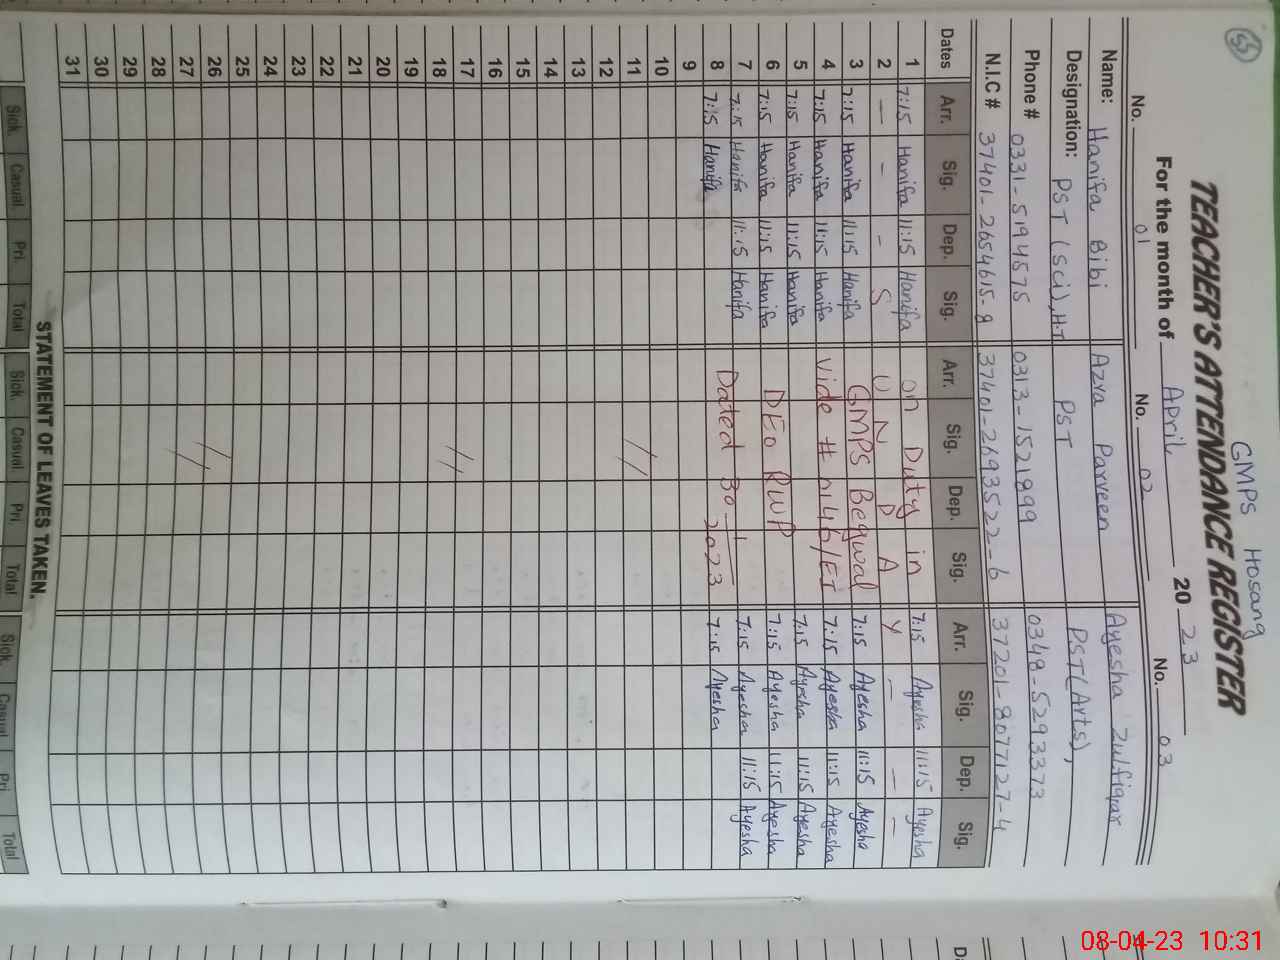 55
GMPS Hosang
TEACHER'S ATTENDANCE REGISTER
For the month of April 2023
No. 01 No. 02 No. 03
Name: Hanifa Bibi Azra Parveen Ayesha Zulfiqar
Designation: PST (Sci), H.T PST PST (Arts),
Phone # 0331-5194575 0313-1521899 0348-5293373
N.I.C # 37401-2654615-8 37401-2693522-6 37201-8077127-4
Dates Arr. Sig. Dep. Sig. Arr. Sig. Dep. Sig. Arr. Sig. Dep. Sig.
1 7:15 Hanifa 11:15 Hanifa on Duty in 7:15 Ayesha 11:15 Ayesha
2 — — — S U N D A Y — — —
3 7:15 Hanifa 11:15 Hanifa GMPS Begwal 7:15 Ayesha 11:15 Ayesha
4 7:15 Hanifa 11:15 Hanifa vide # 1146/EI 7:15 Ayesha 11:15 Ayesha
5 7:15 Hanifa 11:15 Hanifa 7:15 Ayesha 11:15 Ayesha
6 7:15 Hanifa 11:15 Hanifa DEO RWP 7:15 Ayesha 11:15 Ayesha
7 7:15 Hanifa 11:15 Hanifa 7:15 Ayesha 11:15 Ayesha
8 7:15 Hanifa Dated 30-1-2023 7:15 Ayesha
9
10
11 //
12
13
14
15
16
17 //
18
19
20
21
22
23
24
25
26 //
27
28
29
30
31
STATEMENT OF LEAVES TAKEN.
Sick. Casual. Pri. Total Sick. Casual. Pri. Total Sick. Casual Pri Total
08-04-23 10:31